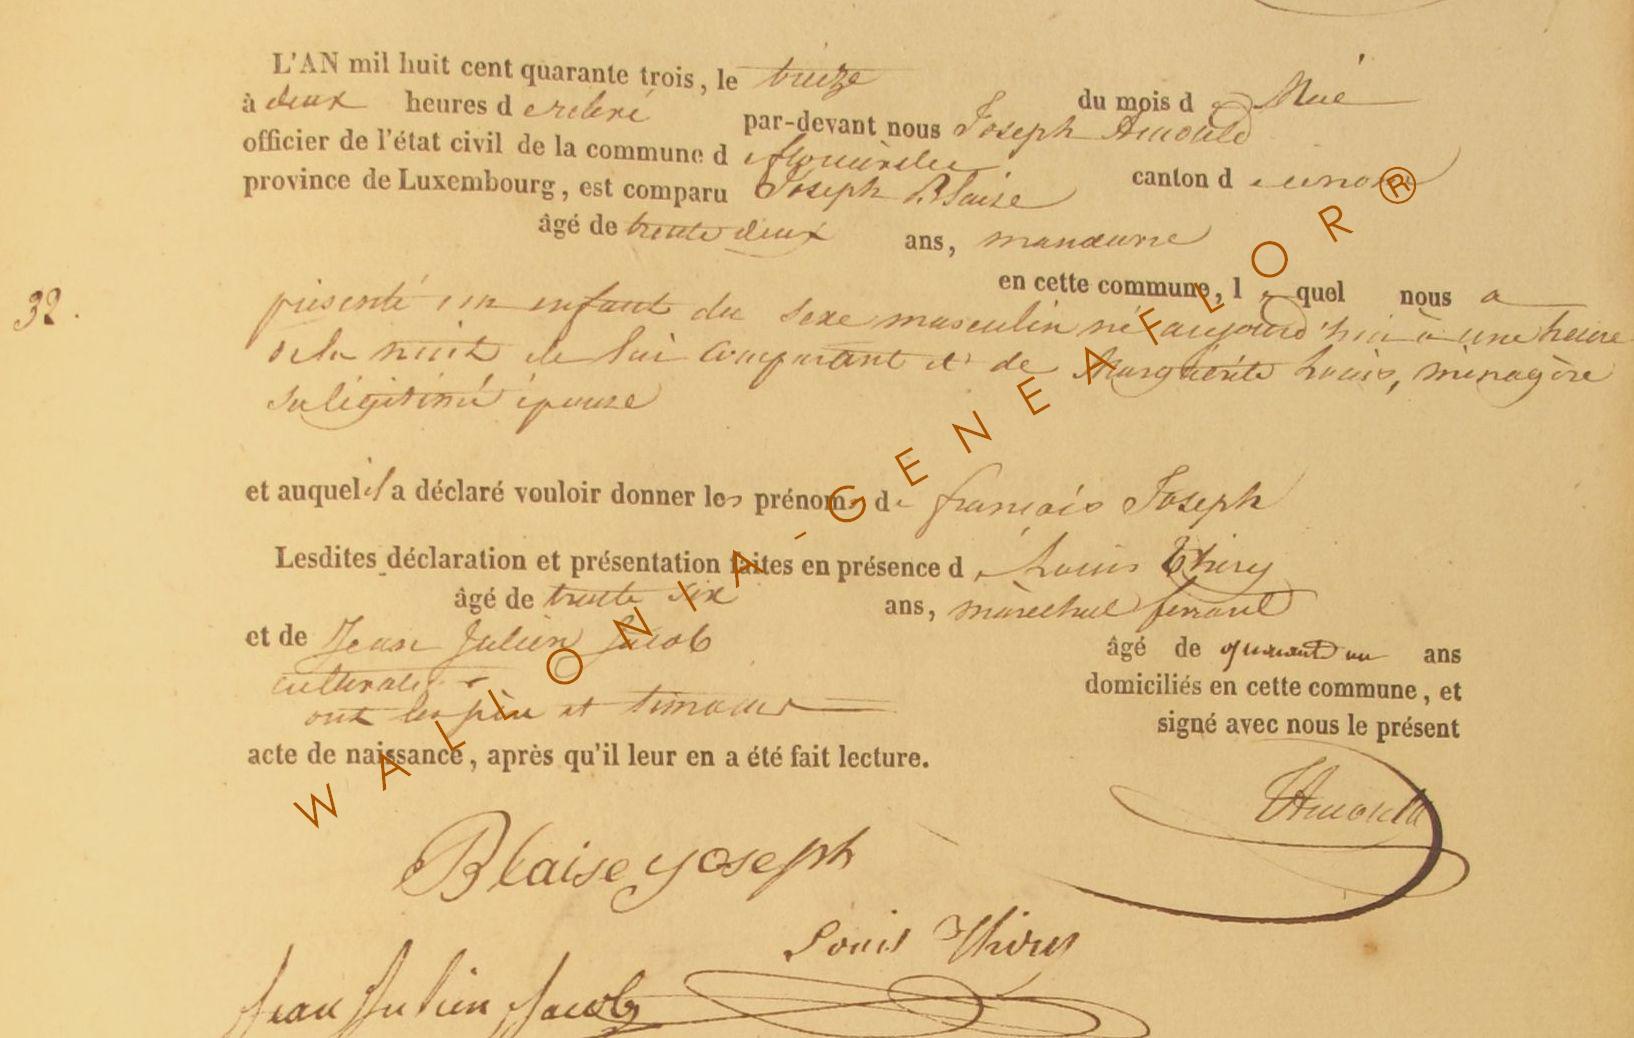 L'AN mil huit cent quarante trois, le treize du mois d e Mai
à deux heures d e relevé par-devant nous Joseph Arnould
officier de l'état civil de la commune d
province de Luxembourg, est comparu Joseph Blaise canton d
âgé de trente deux ans, manœuvre
en cette commune, l e quel nous a
32.
présenté un enfant du sexe masculin né aujourd'hui à une heure
de la nuit de lui comparant et de Marguerite Louis, ménagère
sa légitime épouse
et auquel il a déclaré vouloir donner les prénoms de françois Joseph
Lesdites déclaration et présentation faites en présence d e Louis Thiry
âgé de trente six ans, maréchal ferrant
et de Jean Julien Jacob âgé de quarante un ans
cultivateur domiciliés en cette commune, et
ont les père et témoins signé avec nous le présent
acte de naissance, après qu'il leur en a été fait lecture.
JArnould
Blaise Joseph
Louis Thiry
Jean Julien Jacob
WALLONIA-GENEAFLOR®